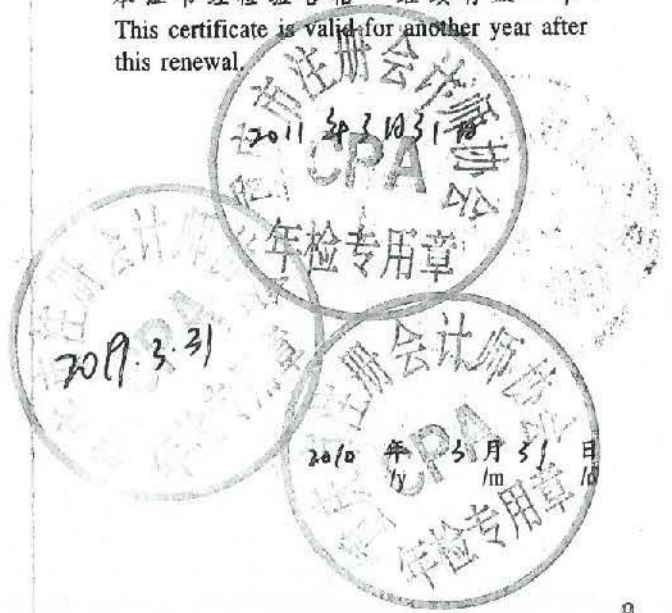 本证书经检验合格，继续有效一年
This certificate is valid for another year after
this renewal.
市注册会计师协会
2011年3月31日
CPA
年检专用章
注册会计师
CPA
2019.3.31
注册会计师协会
CPA
2010 年 3 月 31 日
/y /m /d
年检专用章